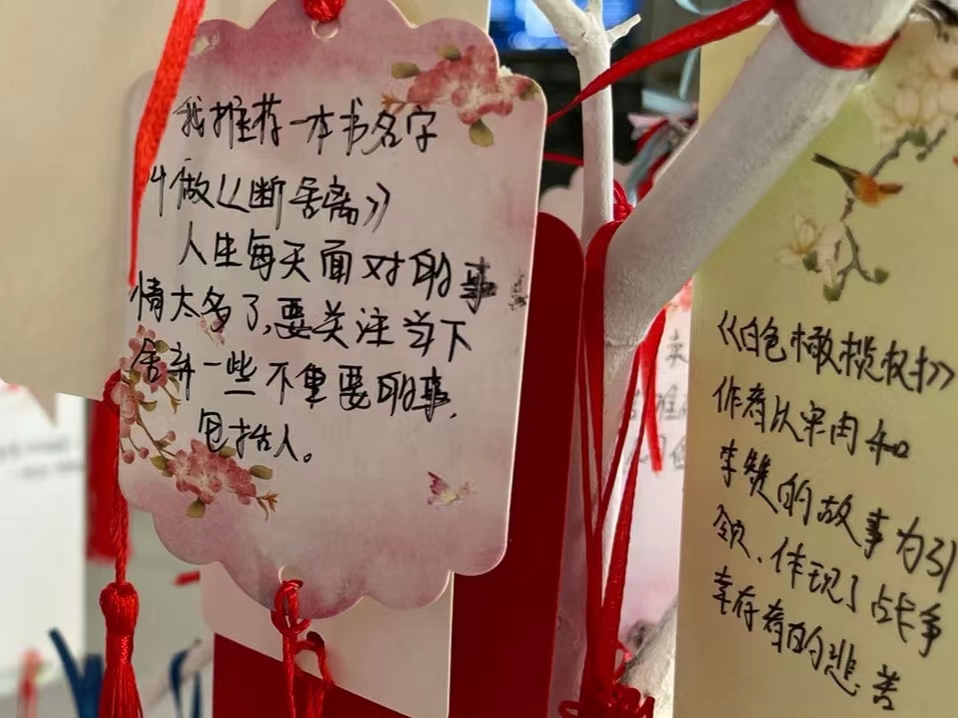 我推荐一本书名字
叫做《断舍离》
人生每天面对的事
情太多了,要关注当下
舍弃一些不重要的事,
包括人。
《白色橄榄树》
作者以宋冉和
李瓒的故事为引
领、体现了战争
幸存者的悲苦